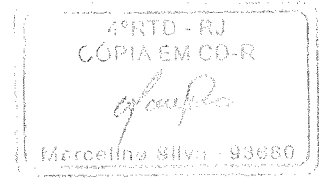 4ºRTD - RJ
CÓPIA EM CD-R
Marcelino Silva - 93680